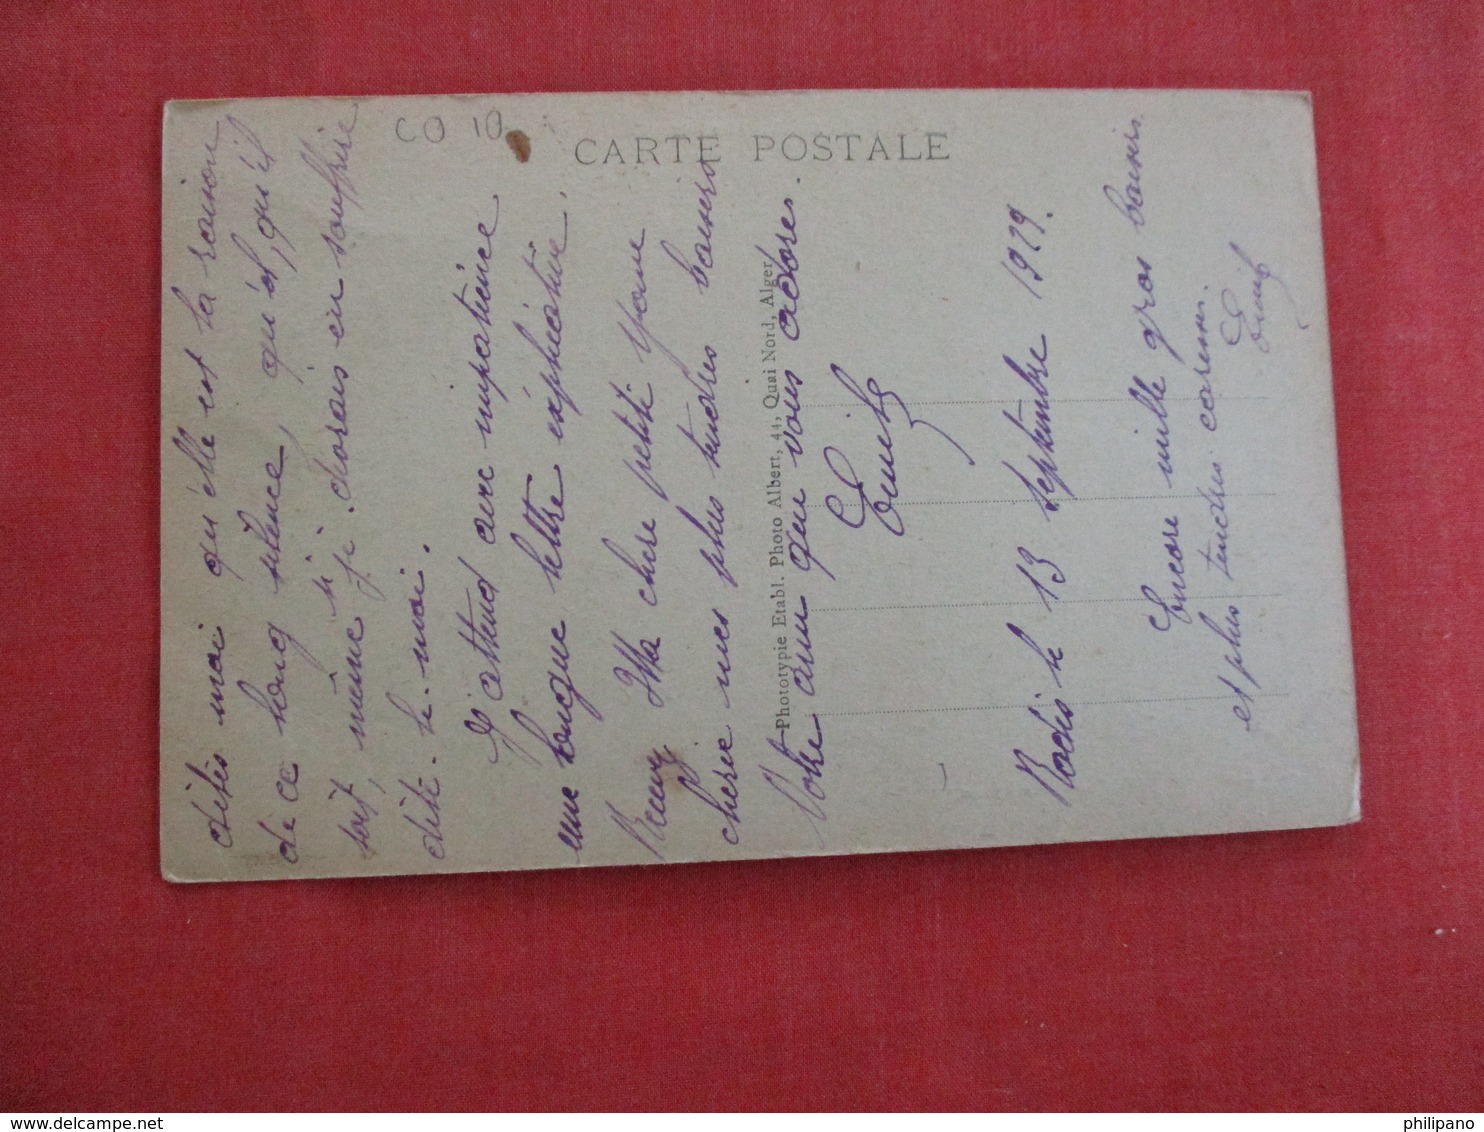 CO 10
CARTE POSTALE
dites moi qu'elle est la raison
de ce long silence, qu'el, qu'il
soit, même si je chorais en souffrire
dite-le-moi.
J'attend avec impatience
une longue lettre explicative.
Ma chere petite Youne
cheree mes plus tendres baisers
Votre ami qui vous adores.
Emile
Phototypie Etabl. Photo Albert, 44, Quai Nord, Alger
le 13 septembre 1929.
Encore mille gros baisers
et plus tendres caresses.
Emile
philipano